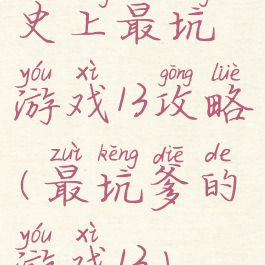 史上最坑
yóu xì gōng lüè
游戏13攻略
zuì kēng diē de
(最坑爹的
yóu xì
游戏13)